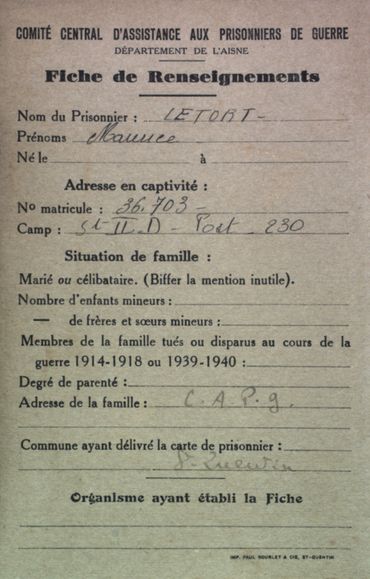 COMITÉ CENTRAL D'ASSISTANCE AUX PRISONNIERS DE GUERRE
DÉPARTEMENT DE L'AISNE
Fiche de Renseignements
Nom du Prisonnier : LETORT -
Prénoms Maurice
Né le à
Adresse en captivité :
No matricule : 36.703 -
Camp : St II.D - Post - 230
Situation de famille :
Marié ou célibataire. (Biffer la mention inutile).
Nombre d'enfants mineurs :
— de frères et sœurs mineurs :
Membres de la famille tués ou disparus au cours de la
guerre 1914-1918 ou 1939-1940 :
Degré de parenté :
Adresse de la famille : C.A.P.g.
Commune ayant délivré la carte de prisonnier :
St Quentin
Organisme ayant établi la Fiche
IMP. PAUL BOURLET & CIE, ST-QUENTIN